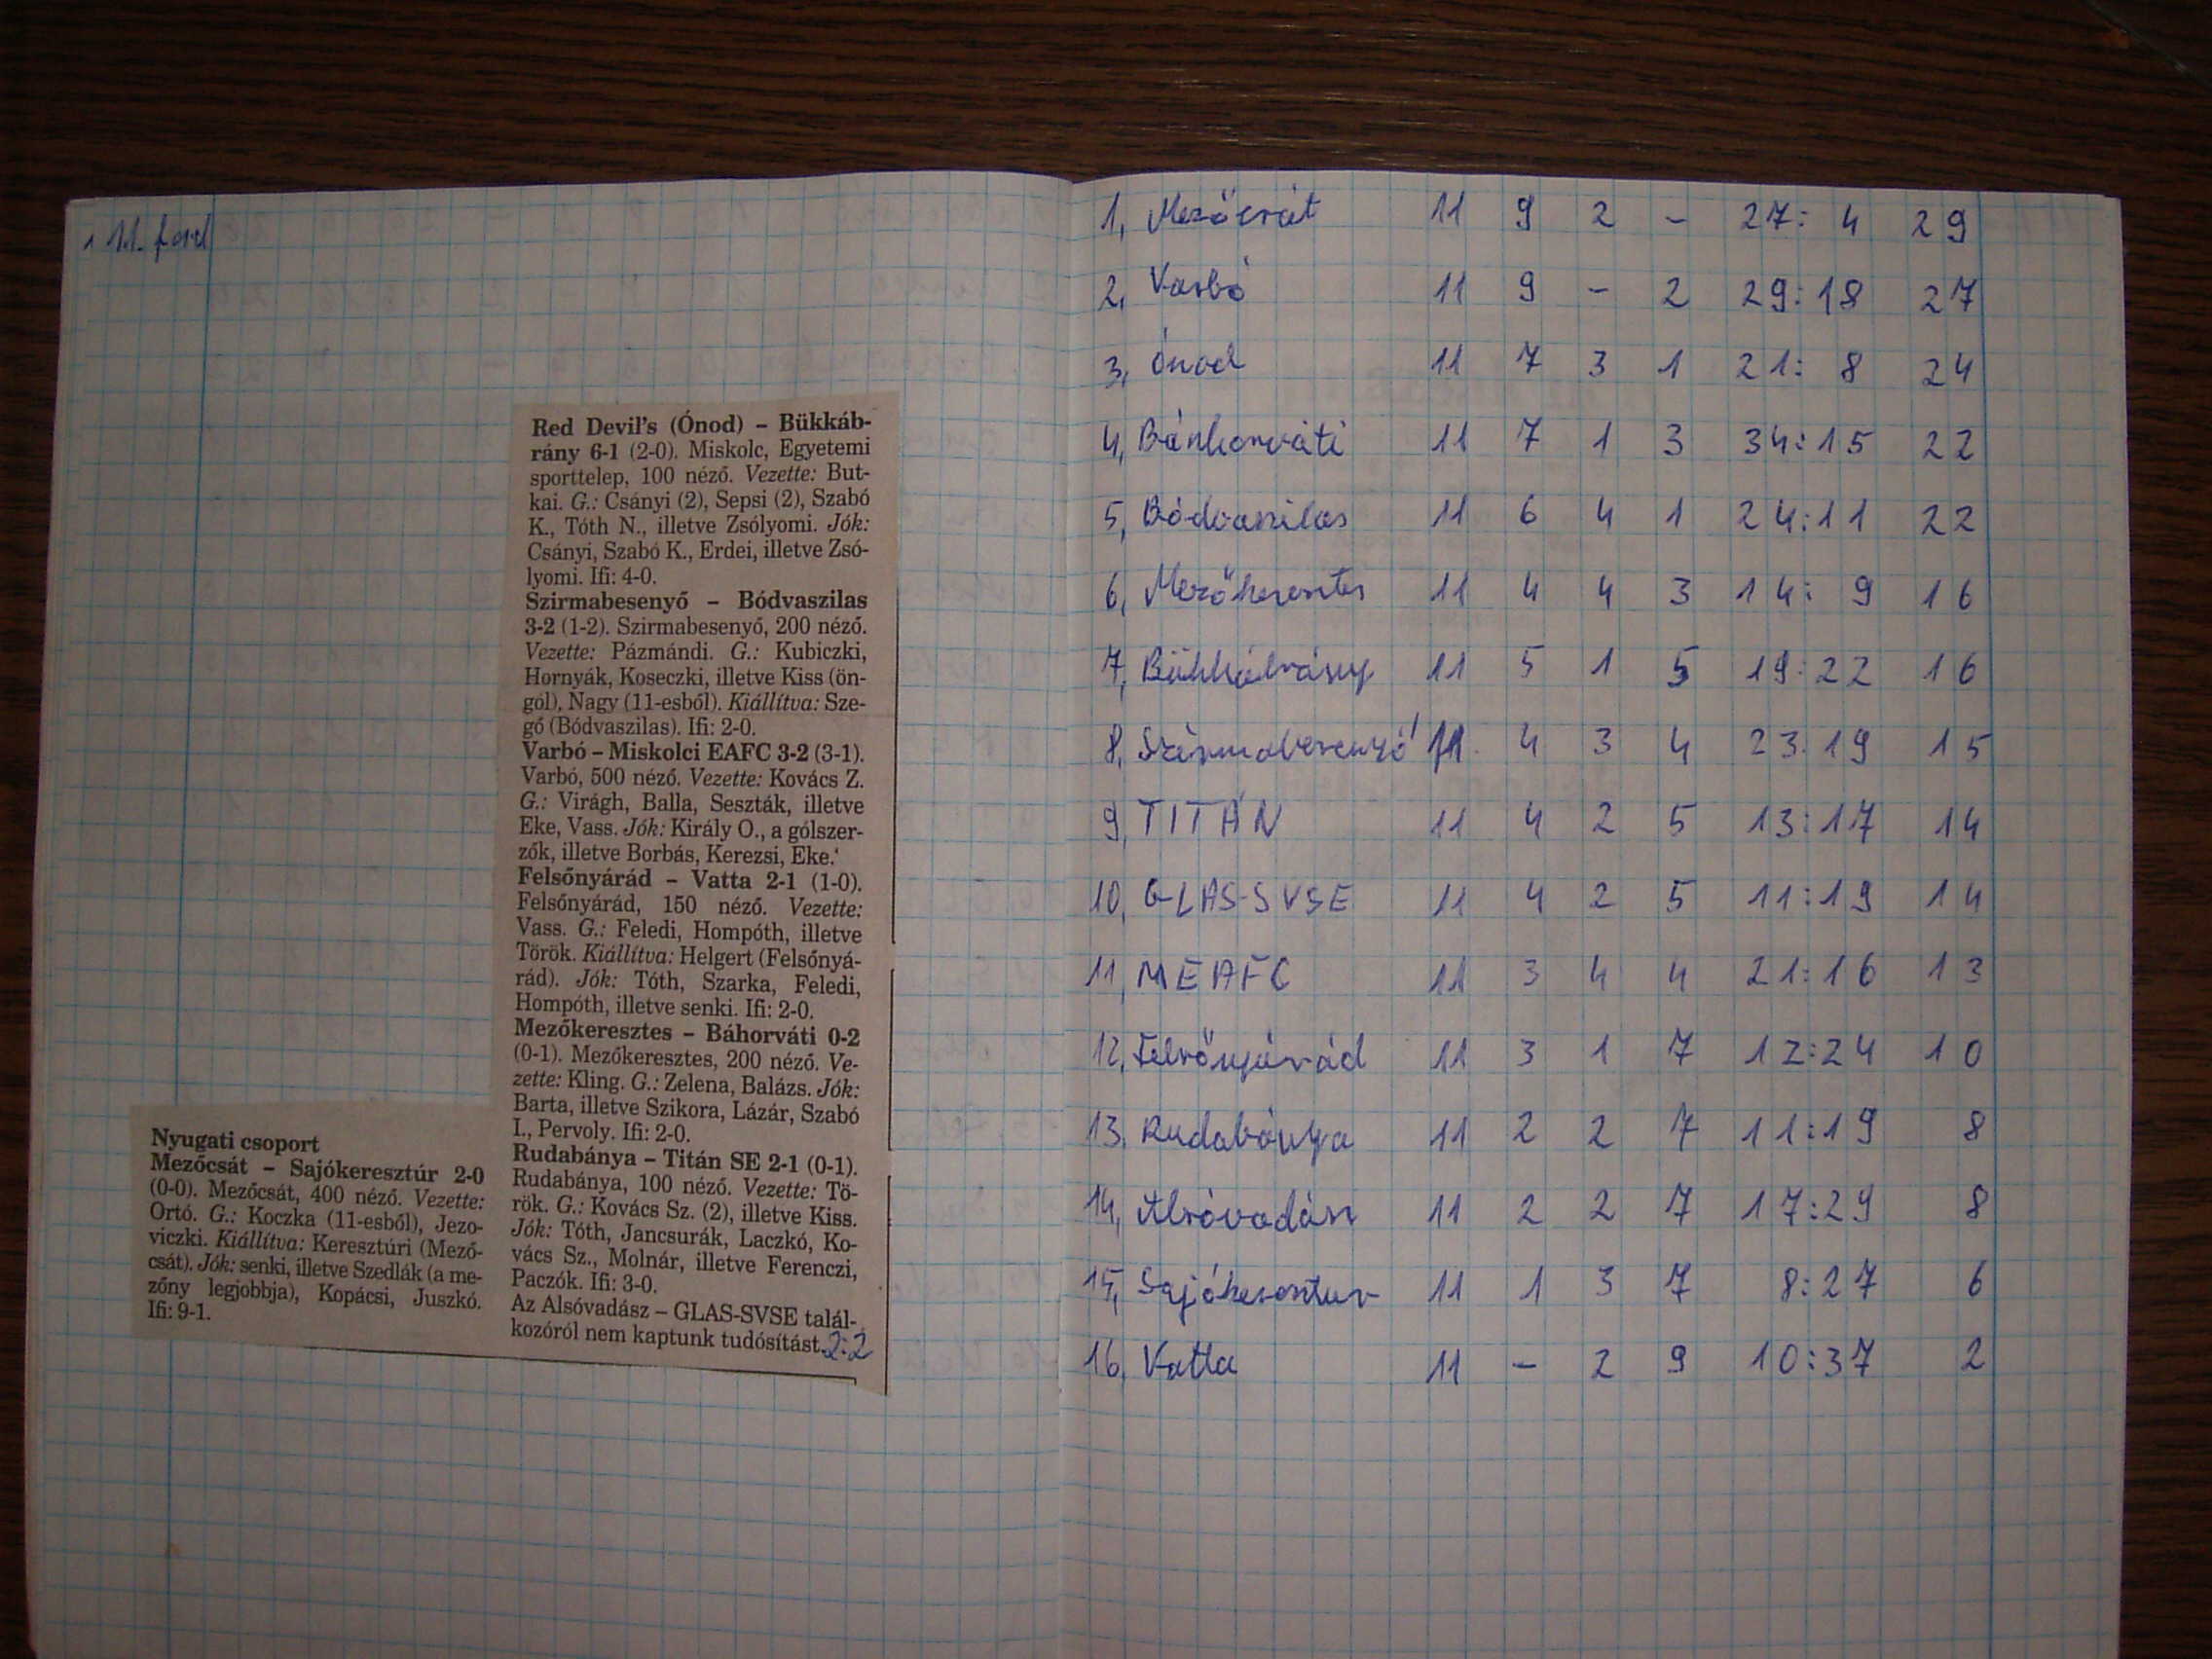 11. ford
Nyugati csoport
Mezőcsát – Sajókeresztúr 2-0
(0-0). Mezőcsát, 400 néző. Vezette:
Ortó. G.: Koczka (11-esből), Jezo-
viczki. Kiállítva: Keresztúri (Mező-
csát). Jók: senki, illetve Szedlák (a me-
zőny legjobbja), Kopácsi, Juszkó.
Ifi: 9-1.
Red Devil's (Ónod) – Bükkáb-
rány 6-1 (2-0). Miskolc, Egyetemi
sporttelep, 100 néző. Vezette: But-
kai. G.: Csányi (2), Sepsi (2), Szabó
K., Tóth N., illetve Zsólyomi. Jók:
Csányi, Szabó K., Erdei, illetve Zsó-
lyomi. Ifi: 4-0.
Szirmabesenyő – Bódvaszilas
3-2 (1-2). Szirmabesenyő, 200 néző.
Vezette: Pázmándi. G.: Kubiczki,
Hornyák, Koseczki, illetve Kiss (ön-
gól), Nagy (11-esből). Kiállítva: Sze-
gő (Bódvaszilas). Ifi: 2-0.
Varbó – Miskolci EAFC 3-2 (3-1).
Varbó, 500 néző. Vezette: Kovács Z.
G.: Virágh, Balla, Seszták, illetve
Eke, Vass. Jók: Király O., a gólszer-
zők, illetve Borbás, Kerezsi, Eke.
Felsőnyárád – Vatta 2-1 (1-0).
Felsőnyárád, 150 néző. Vezette:
Vass. G.: Feledi, Hompóth, illetve
Török. Kiállítva: Helgert (Felsőnyá-
rád). Jók: Tóth, Szarka, Feledi,
Hompóth, illetve senki. Ifi: 2-0.
Mezőkeresztes – Báhorváti 0-2
(0-1). Mezőkeresztes, 200 néző. Ve-
zette: Kling. G.: Zelena, Balázs. Jók:
Barta, illetve Szikora, Lázár, Szabó
I., Pervoly. Ifi: 2-0.
Rudabánya – Titán SE 2-1 (0-1).
Rudabánya, 100 néző. Vezette: Tö-
rök. G.: Kovács Sz. (2), illetve Kiss.
Jók: Tóth, Jancsurák, Laczkó, Ko-
vács Sz., Molnár, illetve Ferenczi,
Paczók. Ifi: 3-0.
Az Alsóvadász – GLAS-SVSE talál-
kozóról nem kaptunk tudósítást. 2:2
1, Mezőcsát 11 9 2 – 27: 4 29
2, Varbó 11 9 – 2 29:18 27
3, Ónod 11 7 3 1 21: 8 24
4, Bánhorváti 11 7 1 3 34:15 22
5, Bódvaszilas 11 6 4 1 24:11 22
6, Mezőkeresztes 11 4 4 3 14: 9 16
7, Bükkábrány 11 5 1 5 19:22 16
8, Szirmabesenyő 11 4 3 4 23:19 15
9, TITÁN 11 4 2 5 13:17 14
10, GLAS-SVSE 11 4 2 5 11:19 14
11, MEAFC 11 3 4 4 21:16 13
12, Felsőnyárád 11 3 1 7 12:24 10
13, Rudabánya 11 2 2 7 11:19 8
14, Alsóvadász 11 2 2 7 17:29 8
15, Sajókeresztur 11 1 3 7 8:27 6
16, Vatta 11 – 2 9 10:37 2